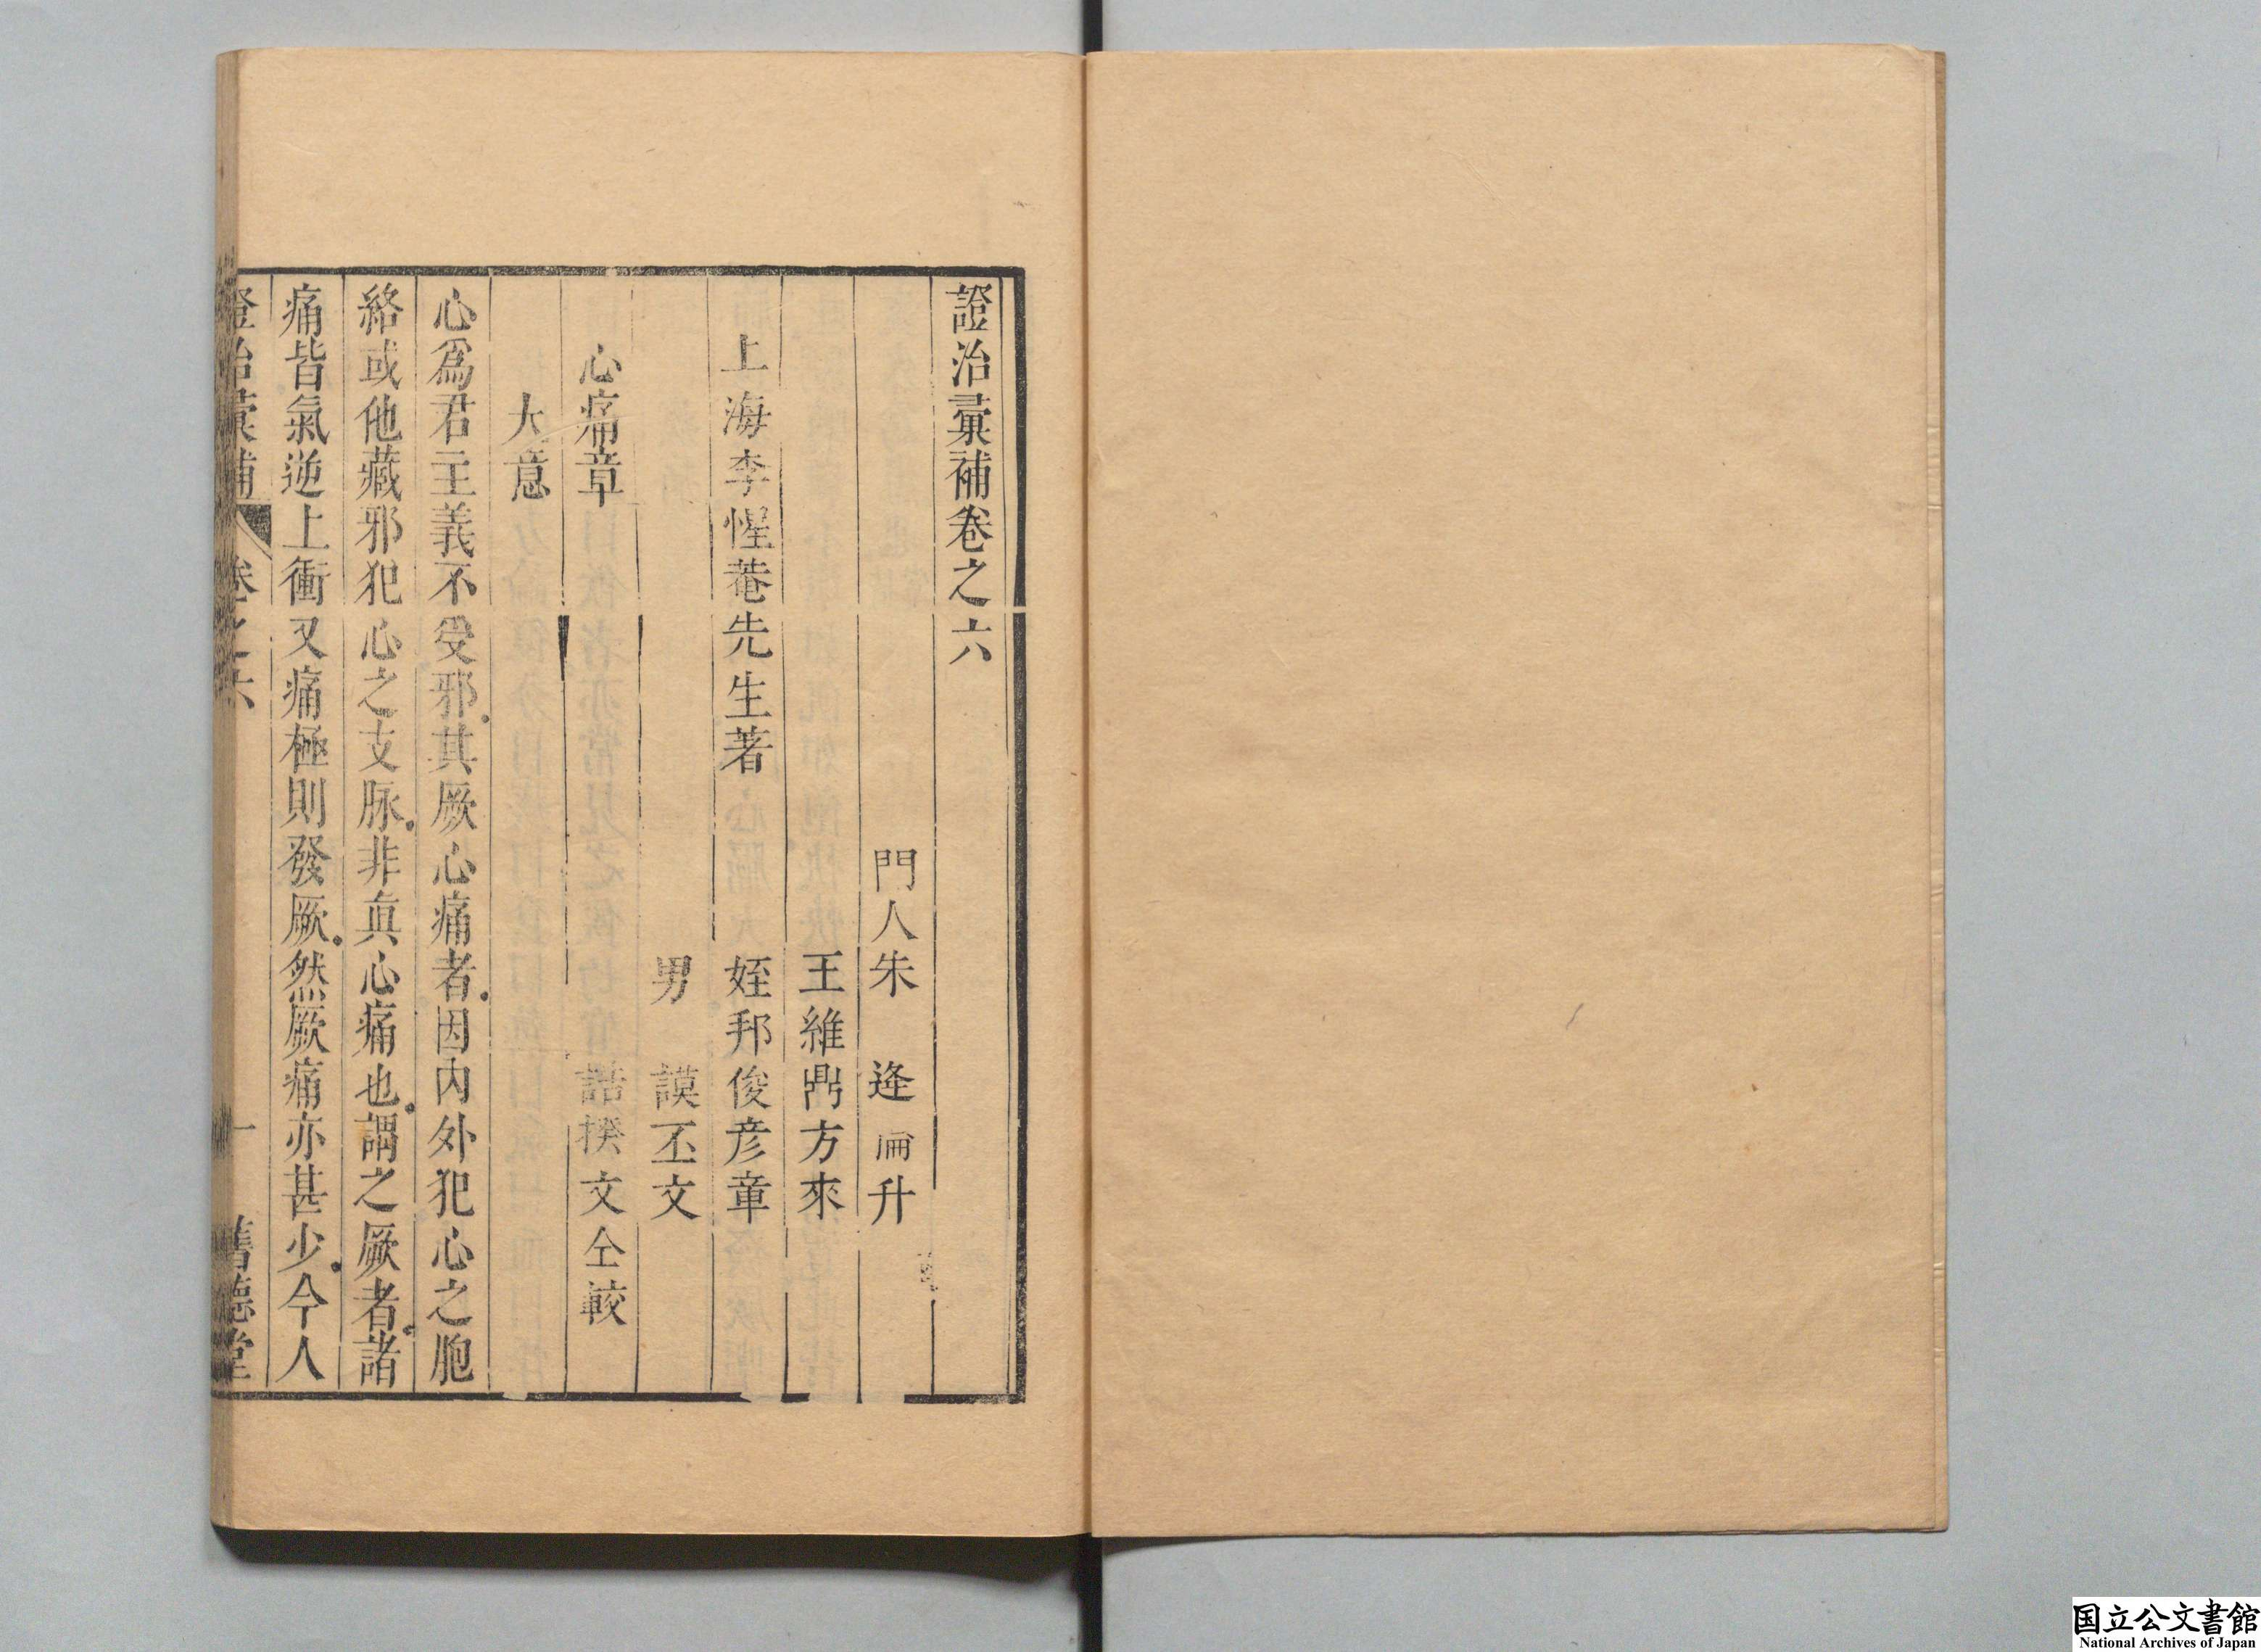 證治彚補卷之六
門人朱　逄　爾升
王維鼎方來
上海李惺菴先生著　姪邦俊彦章
男　謨丕文
心痛章　誥揆文仝較
大意
心爲君主義不受邪其厥心痛者因内外犯心之胞
絡或他藏邪犯心之支脉非眞心痛也謂之厥者諸
痛皆氣逆上衝又痛極則發厥然厥痛亦甚少今人
證治彚補　卷之六　一　舊德堂
国立公文書館
National Archives of Japan